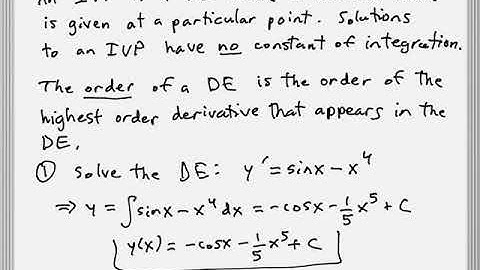 An IVP
is given at a particular point. Solutions
to an IVP have no constant of integration.
The order of a DE is the order of the
highest order derivative that appears in the
DE.
① Solve the DE: y' = sinx - x⁴
⇒ y = ∫sinx - x⁴ dx = -cosx - 1/5 x⁵ + C
y(x) = -cosx - 1/5 x⁵ + C